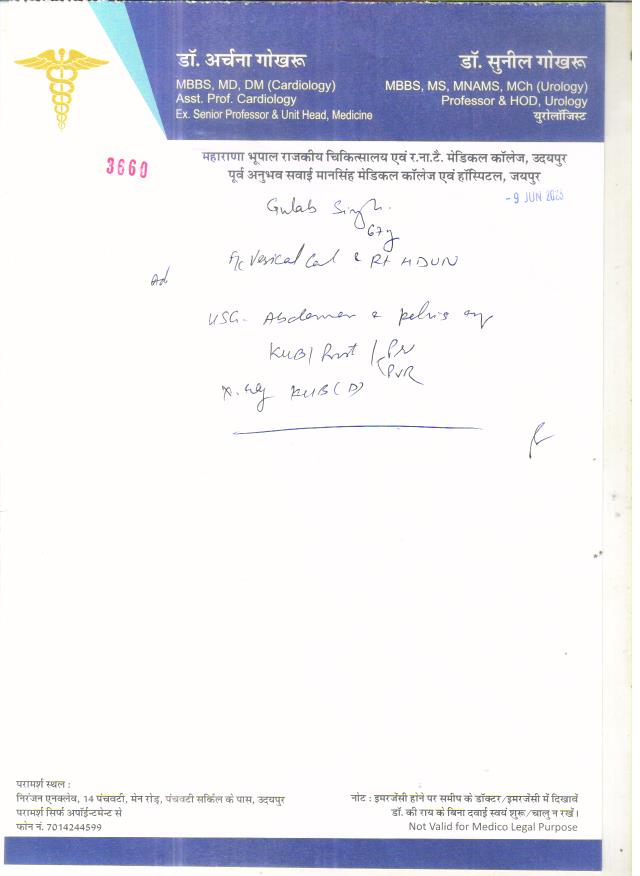 डॉ. अर्चना गोखरू
MBBS, MD, DM (Cardiology)
Asst. Prof. Cardiology
Ex. Senior Professor & Unit Head, Medicine
डॉ. सुनील गोखरू
MBBS, MS, MNAMS, MCh (Urology)
Professor & HOD, Urology
युरोलॉजिस्ट
महाराणा भूपाल राजकीय चिकित्सालय एवं र.ना.टै. मेडिकल कॉलेज, उदयपुर
पूर्व अनुभव सवाई मानसिंह मेडिकल कॉलेज एवं हॉस्पिटल, जयपुर
3660
- 9 JUN 2025
Gulab Singh.
67y
Vesical Cal & Rt HDUN
Ad
USG- Abdomen & pelvis
KUB/ Prost
PVR
X-ray KUB (D)
परामर्श स्थल :
निरंजन एनक्लेव, 14 पंचवटी, मेन रोड़, पंचवटी सर्किल के पास, उदयपुर
परामर्श सिर्फ अपॉईन्टमेन्ट से
फोन नं. 7014244599
नोट : इमरजेंसी होने पर समीप के डॉक्टर/इमरजेंसी में दिखावें
डॉ. की राय के बिना दवाई स्वयं शुरू/चालु न रखें।
Not Valid for Medico Legal Purpose